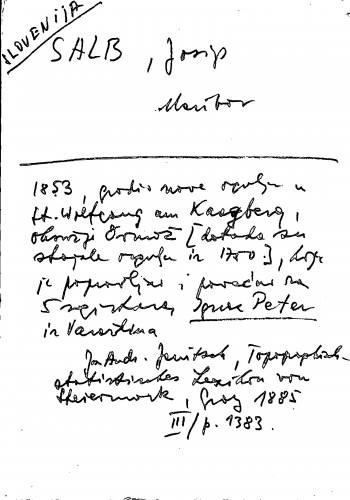 SLOVENIJA
SALB, Josip
Maribor
1853, gradio nove orgulje u
St. Wolfgang am Kaagberg,
okružji Ormož [dotada su
stajale orgulje iz 1700.], koje
je popravljao i povećao na
5 registara, Ignac Peter
iz Varaždina
Jos. Andr. Janitsch, Topographisch-
statistisches Lexikon von
Steiermark, Graz 1885
III/p. 1383.